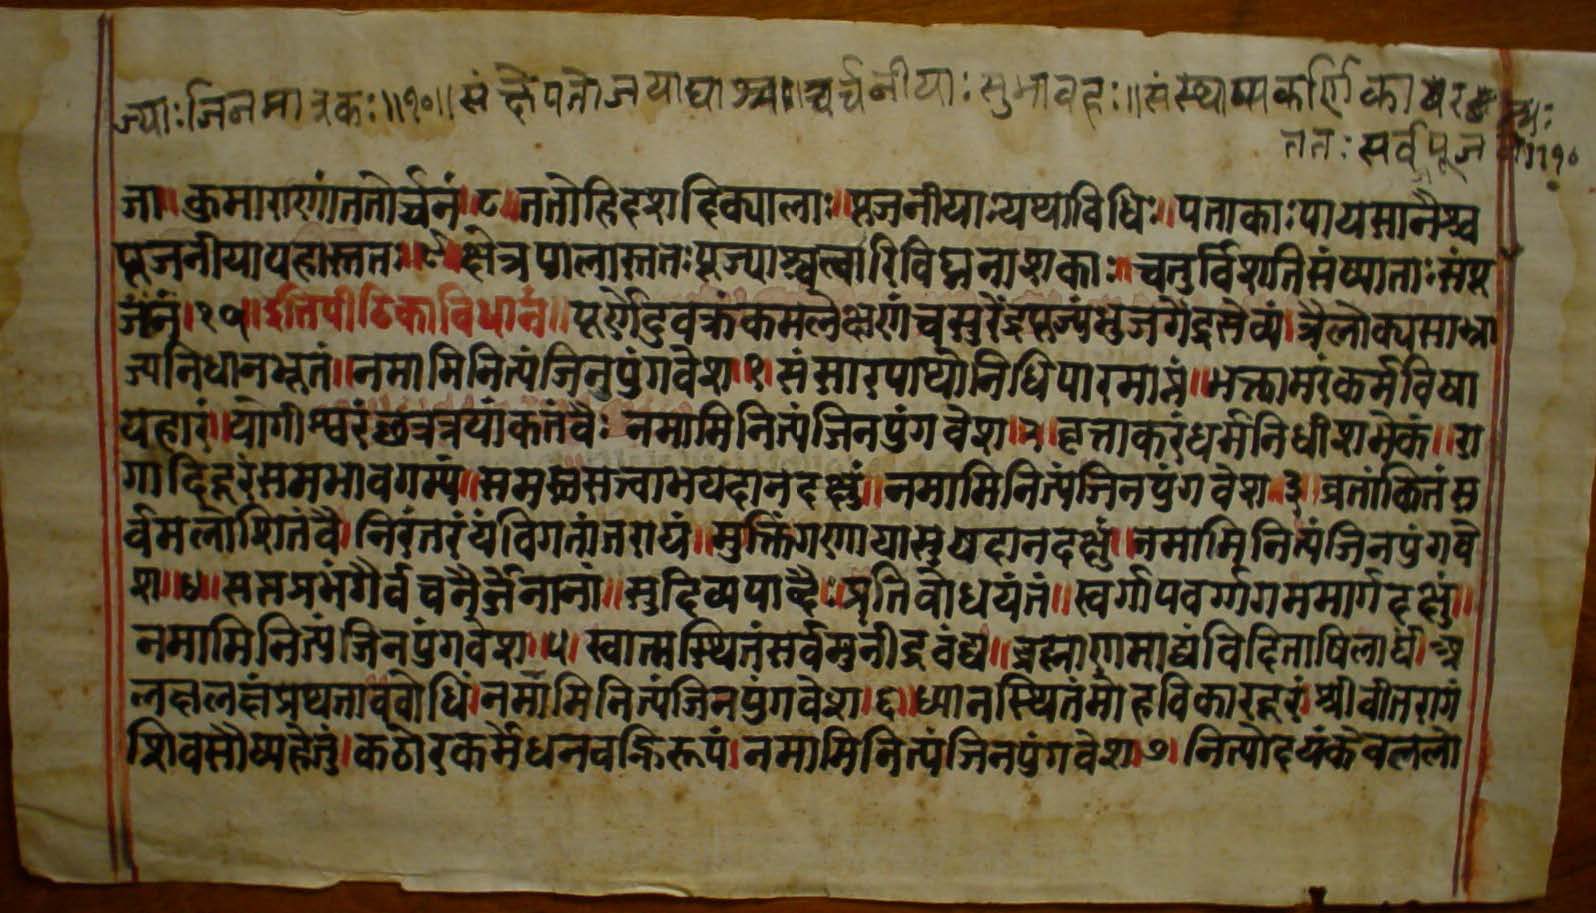 ज्याः जिनमात्रकः॥१०॥ संक्षेपतो जयाद्याश्च अर्चनीयाः सुभावहः॥ संस्थाप्य कर्णिका
ततः सर्व पूज ॥१०
जा॥ कुमाराराणां ततोर्चनं।८॥ ततो हि दश दिक्पालाः॥ पूजनीया यथाविधिः॥ पताकाः पायसानैश्च
पूजनीया ग्रहास्ततः॥९॥ क्षेत्रपालास्ततः पूज्याश्चत्वारि विघ्ननाशकाः॥ चतुर्विंशति संख्याताः संपू
जनं।१०॥ इति पीठिका विधानं॥ पूर्णेंदुवक्त्रं कमलेक्षणं च सुरेंद्रपूज्यं भुजगेंद्रसेव्यं। त्रैलोक्यसाम्रा
ज्यनिधानभूतं॥ नमामि नित्यं जिनपुंगवेश॥१॥ संसारपाथोनिधिपारमाप्तं॥ भक्तामरं कर्मविषा
पहारं॥ योगीश्वरं छत्रत्रयांकतं वै नमामि नित्यं जिनपुंगवेश॥२॥ वृत्ताकरं धर्मनिधीशमेकं॥ रा
गादिदूरं समभावगम्यं॥ समस्तसत्वाभयदानदक्षुं॥ नमामि नित्यं जिनपुंगवेश॥३॥ व्रतांकितं स
र्वमलोशितं वै। निरंतरं यं विगतांतरायं॥ मुक्तिंगणायासुखदानदक्षुं॥ नमामि नित्यं जिनपुंगवे
श॥४॥ सप्तप्रभंगैर्वचनैर्जनानां॥ सुदिव्य प्रतिबोधयंतं॥ स्वर्गापवर्ग्गगममार्गदक्षुं॥
नमामि नित्यं जिनपुंगवेश॥५॥ स्वात्मस्थितं सर्वमुनींद्रवंद्य॥ ब्रह्माणमाद्यं विदिताषिलार्थं। अ
नमामि नित्यं जिनपुंगवेश।६॥ ध्यानस्थितं मोहविकारदूरं। श्रीवीतरागं
शिवसौष्यहेतुं। कठोरकर्मेंधनवह्निरूपं। नमामि नित्यं जिनपुंगवेश।७। नित्योदयं केवललो